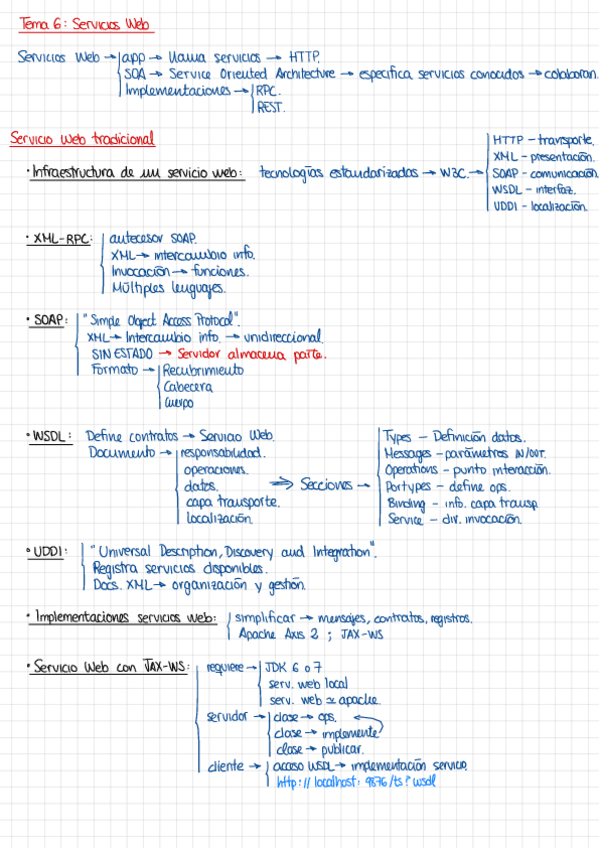 Tema 6: Servicios Web
Servicios Web → app → llama servicios → HTTP.
SOA → Service Oriented Architecture → especifica servicios conocidos → colaboran.
Implementaciones → RPC.
REST.
Servicio web tradicional
· Infraestructura de un servicio web: tecnologías estandarizadas → W3C. →
HTTP - transporte.
XML - presentación.
SOAP - comunicación
WSDL - interfaz.
UDDI - localización.
· XML-RPC: autecesor SOAP.
XML → intercambio info.
Invocación → funciones.
Múltiples lenguajes.
· SOAP: "Simple Object Access Protocol".
XML → Intercambio info. → unidireccional.
SIN ESTADO → Servidor almacena parte.
Formato → Recubrimiento
Cabecera
Cuerpo
· WSDL: Define contratos → Servicio Web.
Documento → responsabilidad.
operaciones.
datos.
capa transporte.
localización
⇒ Secciones →
Types - Definición datos.
Messages - parámetros IN/OUT.
Operations - punto interacción.
Portypes - define ops.
Binding - info. capa transp.
Service - dir. invocación
· UDDI: "Universal Description, Discovery and Integration".
Registra servicios disponibles.
Docs. XML → organización y gestión.
· Implementaciones servicios web: simplificar → mensajes, contratos, registros.
Apache Axis 2 ; JAX-WS
· Servicio Web con JAX-WS: requiere → JDK 6 o 7
serv. web local
serv. web ≃ apache.
servidor → clase → ops.
clase → implemente
clase → publicar.
cliente → acceso WSDL → implementación servicio.
http://localhost:9876/ts?wsdl